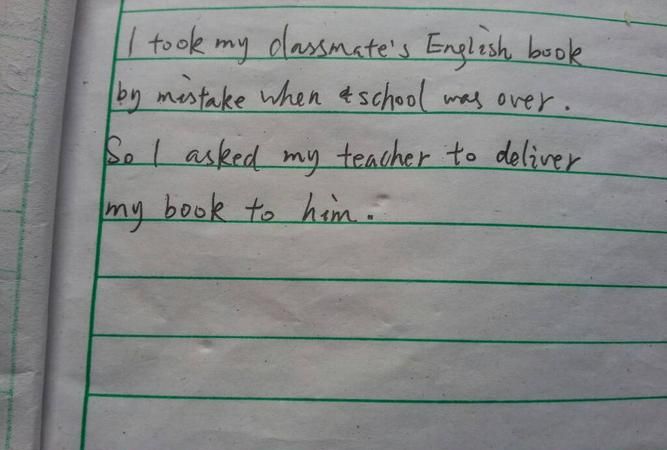 I took my classmate's English book
by mistake when school was over.
So I asked my teacher to deliver
my book to him.